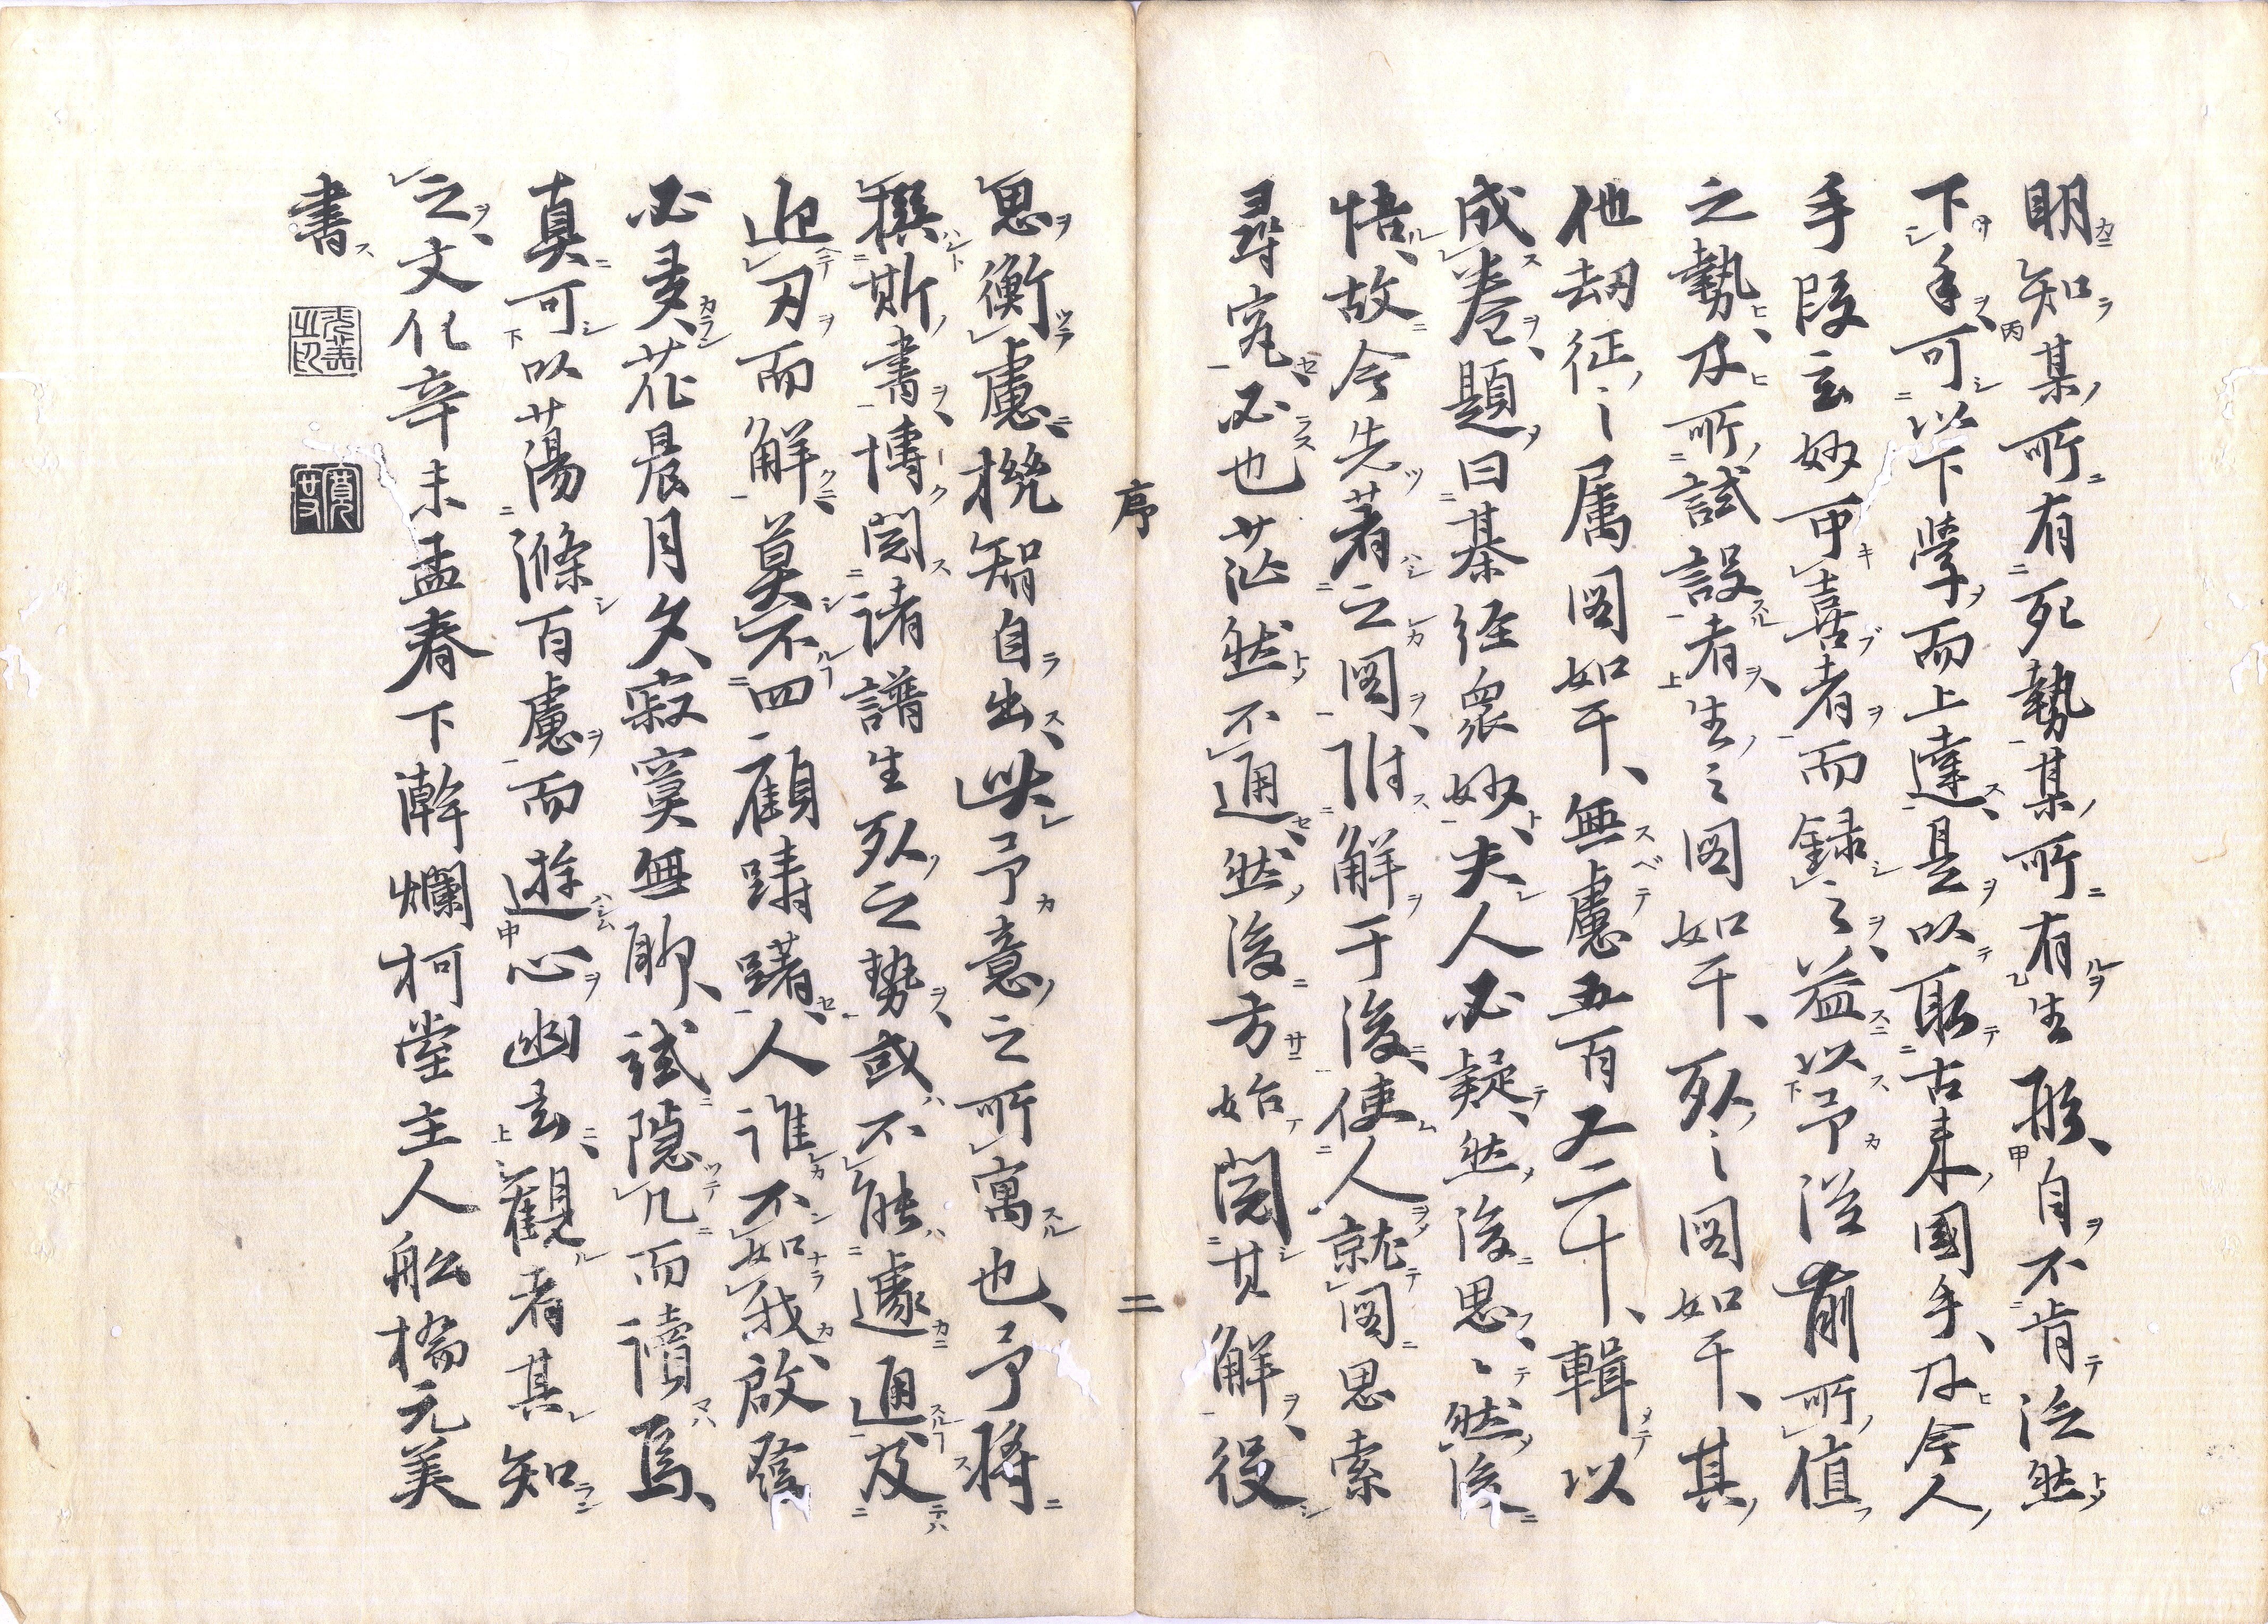 明知某所有死勢某所有生形、自不肯泛然
下手、可以下學而上達、是以取古来國手、及今人
手段玄妙可喜者而録之、益以予従前所値
之勢、及所試設者、生之図如干、死之図如干、其
他劫征之属図如干、無慮五百又二十、輯以
成巻、題曰棊経衆妙、夫人必疑、然後思、思然後
悟、故今先著之図、附解于後、使人就図思索
尋究、必也茫然不通、然後方始閲其解、役
序 二
思衡慮、機智自出、此予意之所寓也、予将
撰斯書、博閲諸譜生死之勢、或不能遽通、及
迎刃而解、莫不四顧躊躇、人誰不如我、啟發
必多、花晨月夕、寂寞無聊、試隠几而讀焉、
真可以蕩滌百慮而遊心幽玄、観者其知
之、文化辛未孟春下澣爛柯堂主人舩橋元美
書